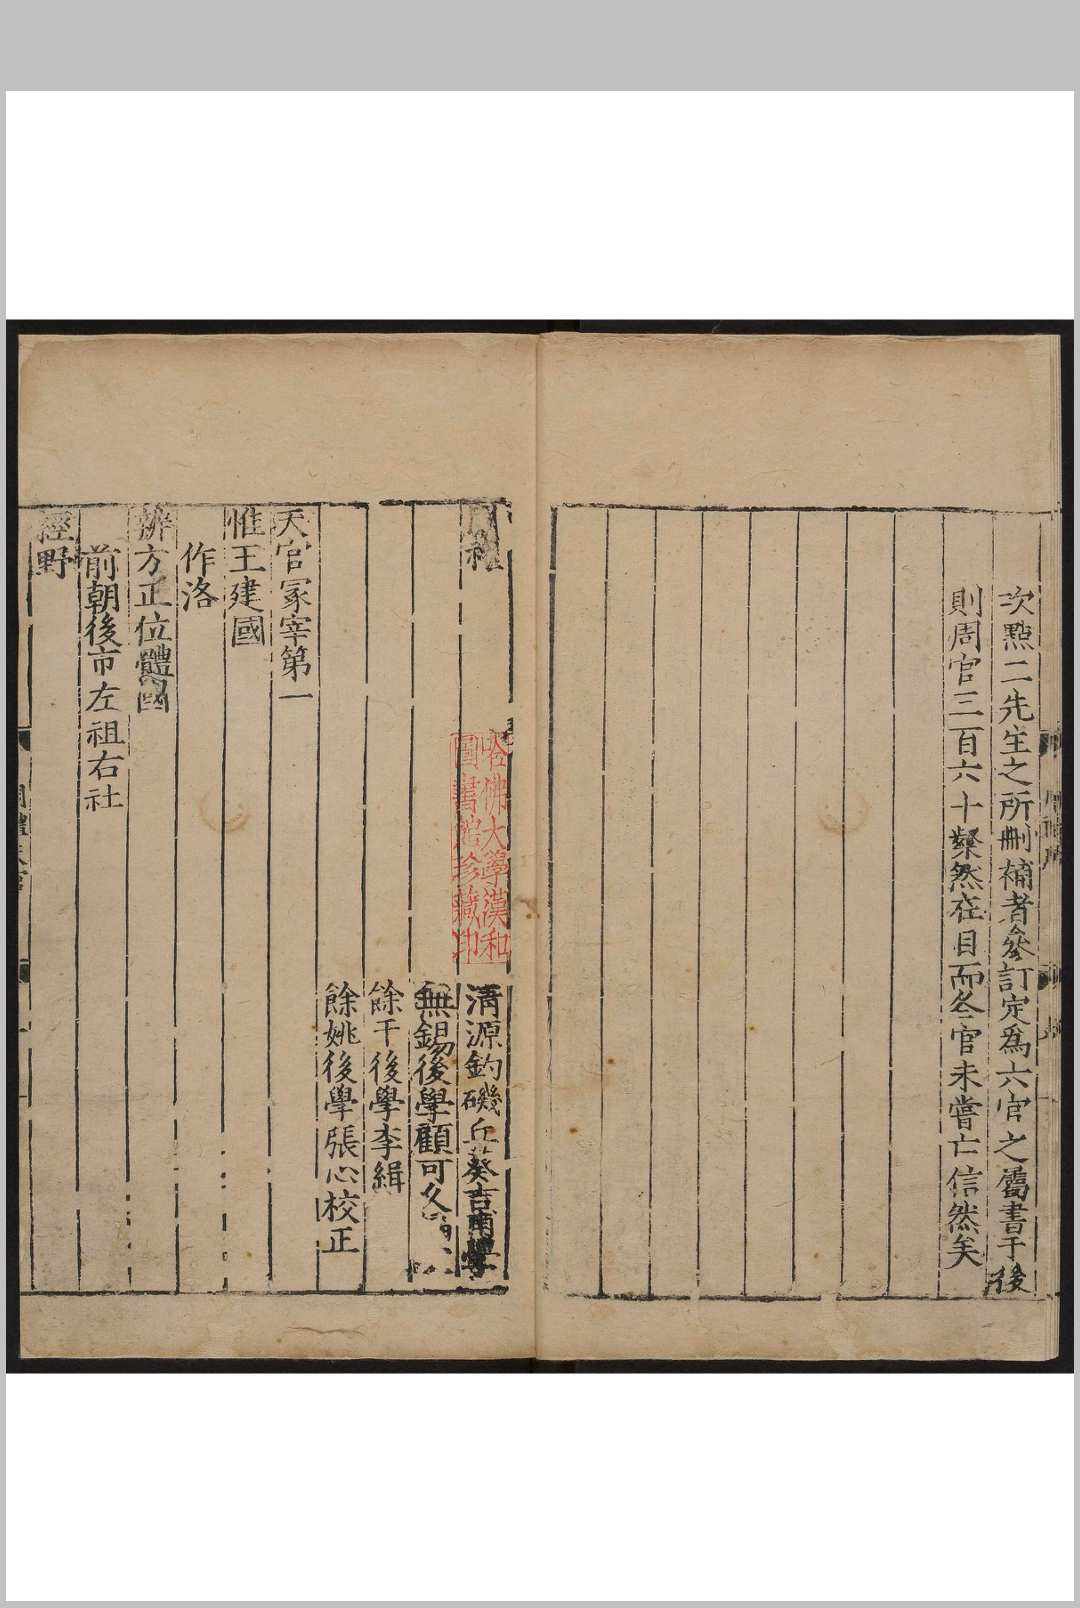 次㸃二先生之所刪補者叅訂定為六官之屬書于後
則周官三百六十粲然在目而各官未嘗亡信然矣
周禮
哈佛大學漢和
圖書館珍藏印
清源釣磯丘葵吉甫學
無錫後學顧可久
餘干後學李緝
餘姚後學張心校正
天官冢宰第一
惟王建國
作洛
辨方正位體國
前朝後市左祖右社
經野